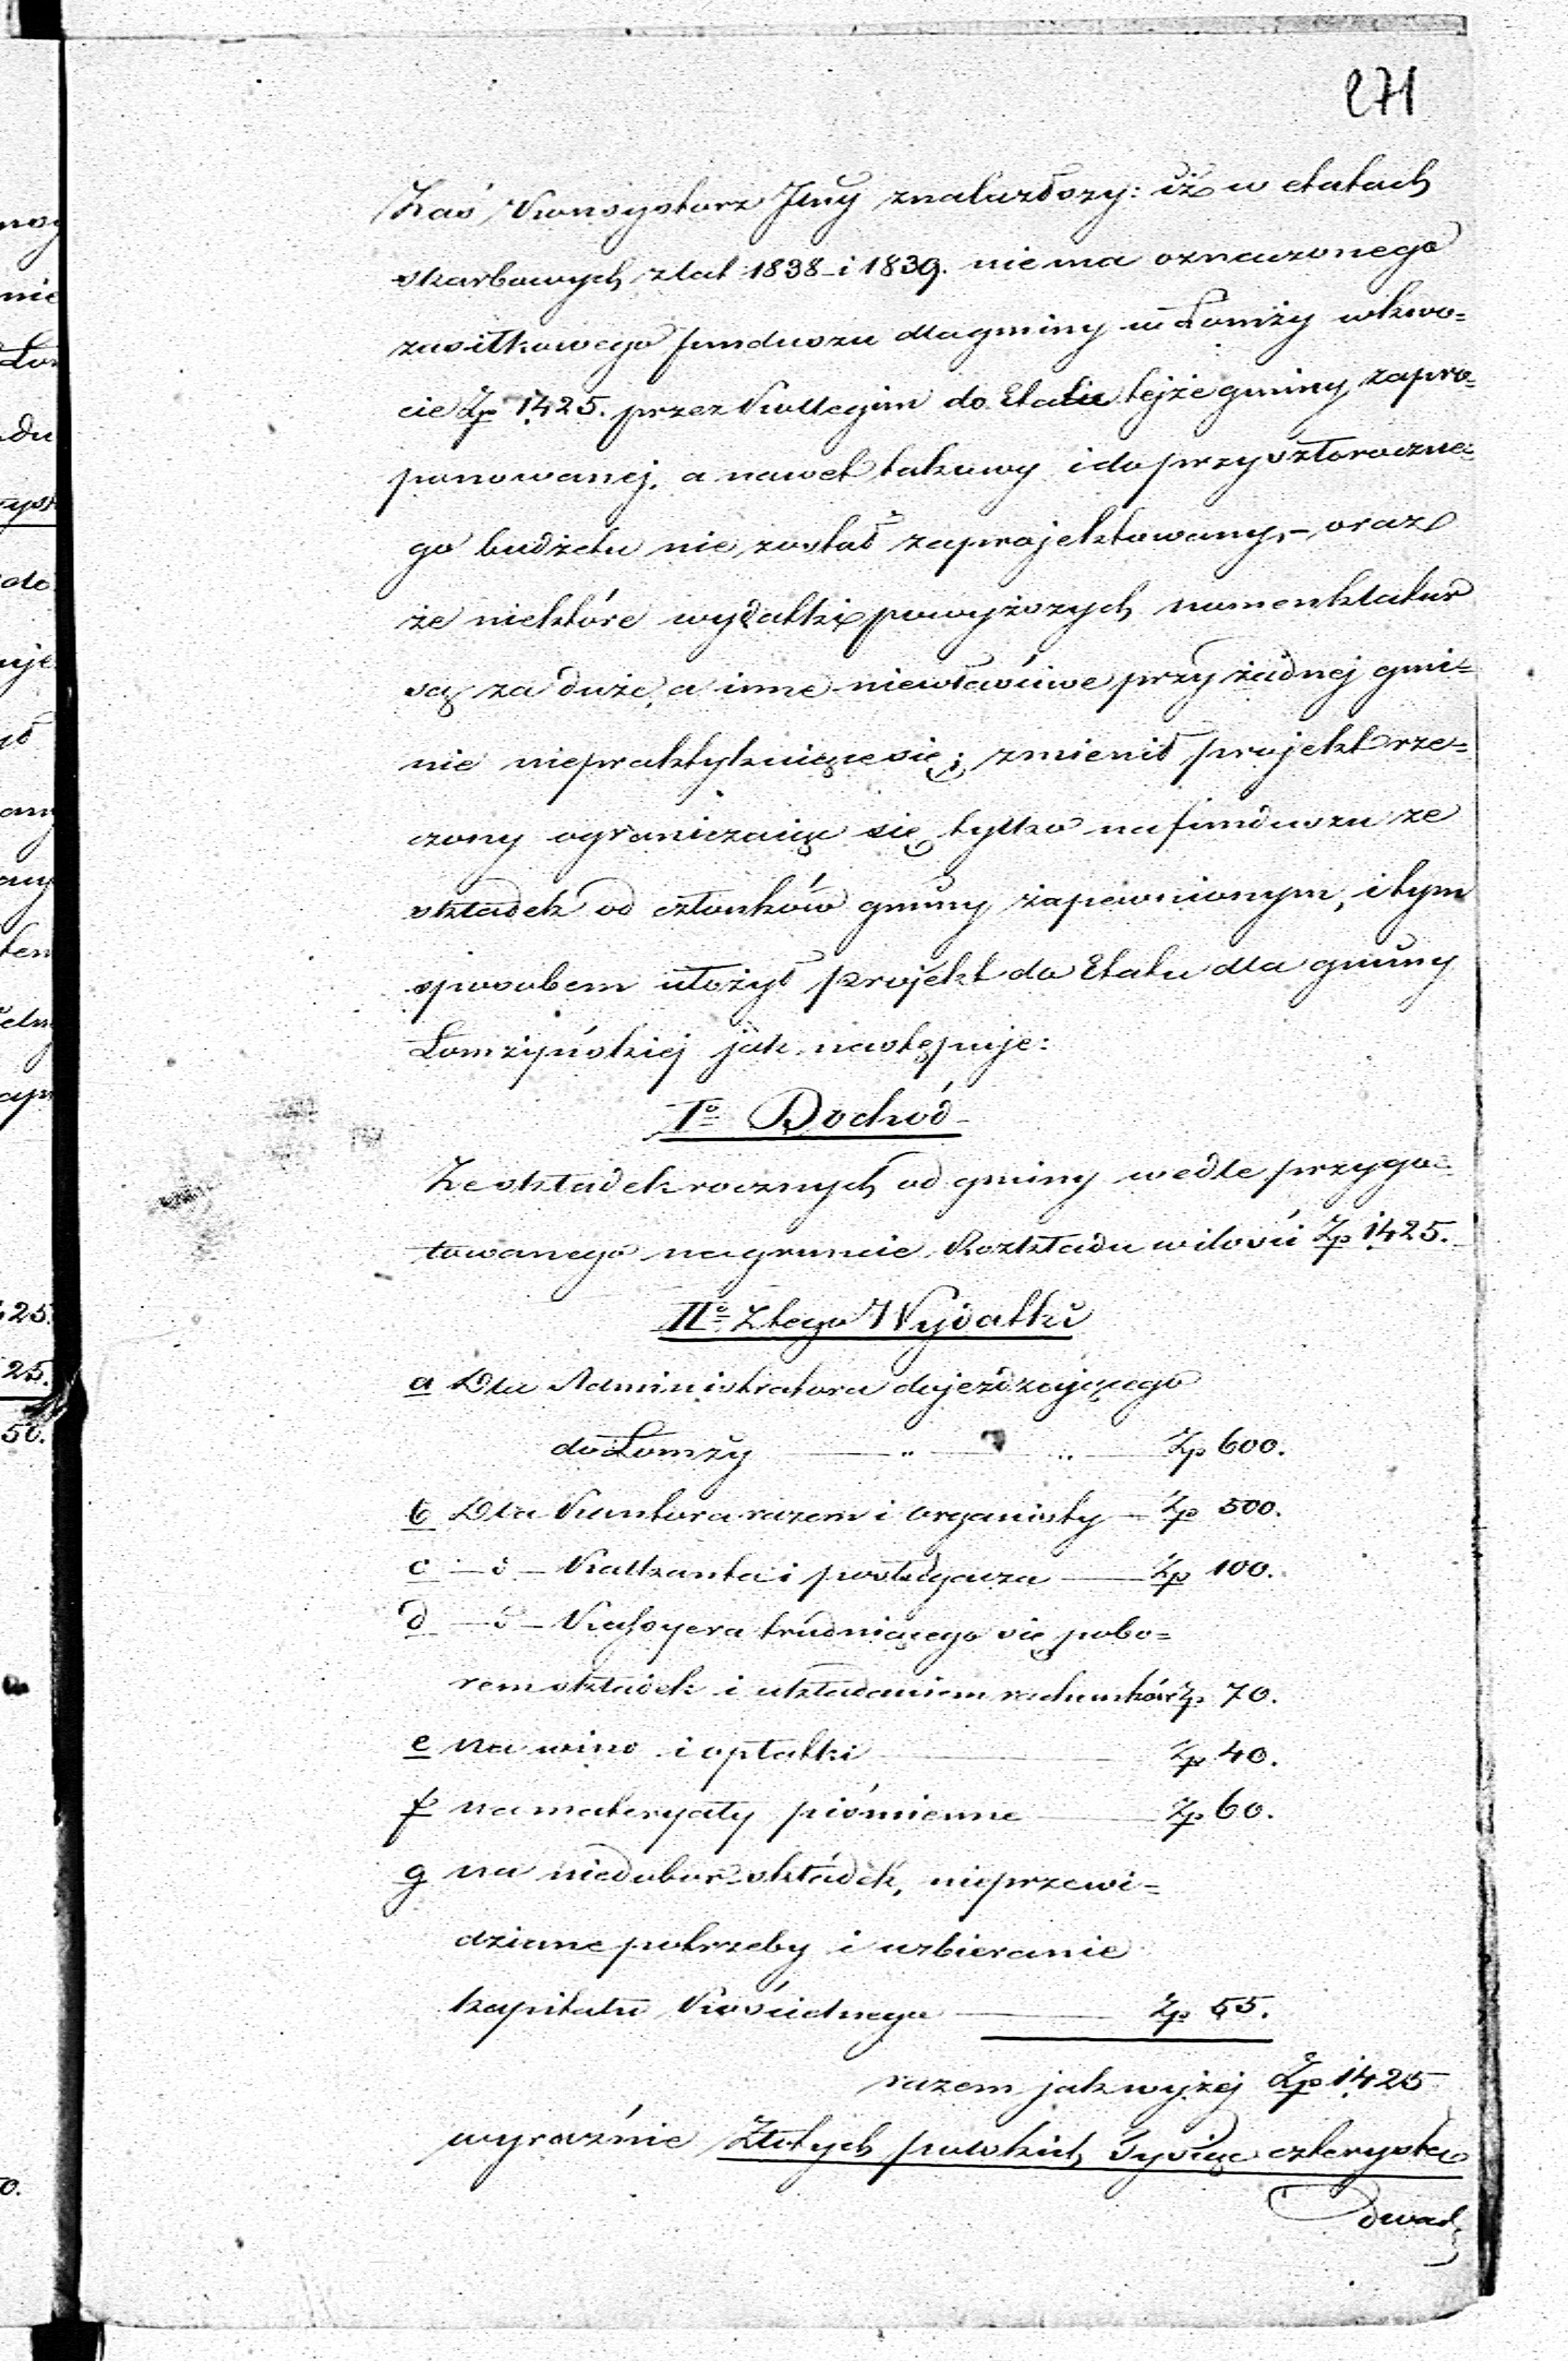 271
Zaś Konsystorz Jlny znalazłszy: iż w etatach
skarbowych z lat 1838 i 1839. niema oznaczonego
zasiłkowego funduszu dla gminy w Łomży w kwo=
cie Zp 1425. przez Kollegium do Etatu tejże gminy zapro=
ponowanej, a nawet takowy i do przyszłoroczne=
go budżetu nie został zaprojektowany, – oraz
że niektóre wydatki powyższych nomenklatur
są za duże, a inne niewłaściwe przy żadnej gmi=
nie niepraktykuiące się; zmienił projekt rze=
czony ograniczaiąc się tylko na funduszu ze
składek od członków gminy zapewnionym, i tym
sposobem ułożył projekt do Etatu dla gminy
Łomżyńskiej jak następuje:
Iº Dochód
Ze składek rocznych od gminy wedle przygo=
towanego na gruncie Rozkładu w ilości Zp 1425.
IIº Z tego Wydatki
a Dla Administratora dojeżdzającego
do Łomży — „ — „ — Zp 600.
b Dla Kantora razem i organisty – Zp 500.
c – d – Kalkanta i posługacza — Zp 100.
d – d – Kassyera trudniącego się pobo=
rem składek i układaniem rachunków Zp 70.
e na wino i opłatki — Zp 40.
f na materyały piśmienne — Zp 60.
g na niedobor składek, nieprzewi=
dziane potrzeby i uzbieranie
kapitału Kościelnego — Zp 55.
razem jak wyżej Zp 1425
wyraźnie Złotych polskich Tysiąc czterysta
dwad